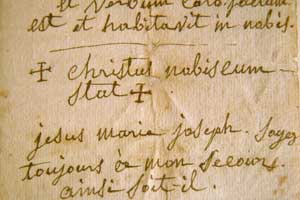 et verbum caro factum
est et habitavit in nobis.
✝ christus nobiscum
stat ✝
jesus marie joseph. soyez
toujours à mon secours
ainsi soit-il.